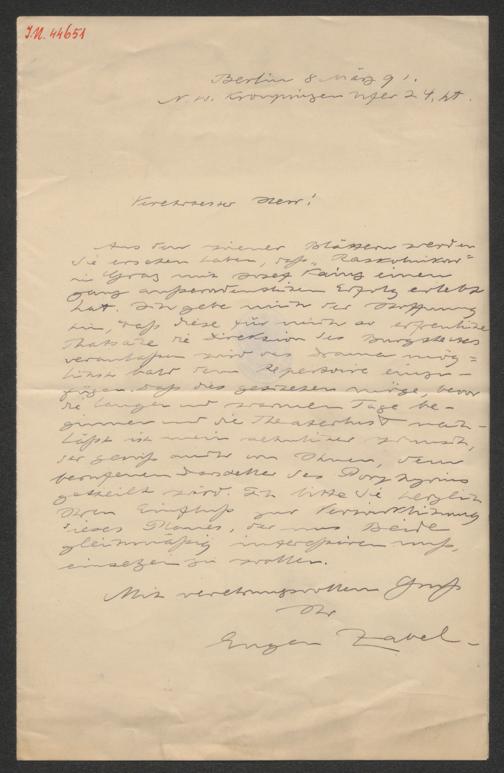 I.N. 44651
Berlin 8 März 91.
N. W. Kronprinzen Ufer 24, ht.
Verehrtester Herr!
Aus den Wiener Blättern werden
Sie ersehen haben, daß „Raskolnikow“
in Graz mit Josef Kainz einen
ganz außerordentlichen Erfolg erlebt
hat. Ich gebe mich der Hoffnung
hin, daß diese für mich so erfreuliche
Thatsache die Direktion des Burgtheaters
veranlassen wird das Drama mög=
lichst bald dem Repertoire einzu=
fügen. Daß das geschehen möge, bevor
die langen und warmen Tage be-
ginnen und die Theaterlust nach-
läßt ist mein sehnlicher Wunsch,
der gewiß auch von Ihnen, dem
berufenen Darsteller des Porphyrius
getheilt wird. Ich bitte Sie herzlich
Ihren Einfluß zur Verwirklichung
dieses Planes, der uns Beide
gleichmäßig interessiren muß,
einsetzen zu wollen.
Mit verehrungsvollem Gruß
Ihr
Eugen Zabel